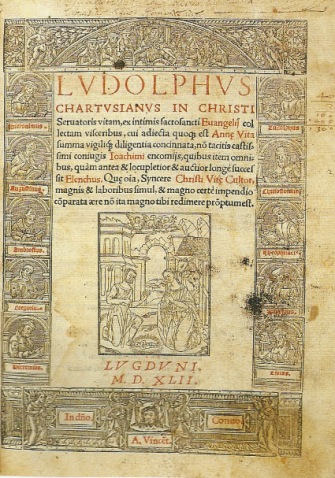 LVDOLPHVS
CHARTVSIANVS IN CHRISTI
Seruatoris vitam, ex intimis sacrosancti Euangelij col
lectam visceribus, cui adiecta quoq; est Annę Vita
summa vigiliq; diligentia concinnata, nō tacitis castis
simi coniugis Ioachimi encomijs, quibus item omni-
bus, quàm antea & locupletior & auctior longè succes
sit Elenchus. Quę oīa, Syncere Christi Vitę Cultor,
magnis & laboribus simul, & magno certè impendio
cōparata ære nō ita magno tibi redimere prōptum est.
LVGDVNI.
M. D. XLII.
In dño.
Confido.
A. Vincēt.
Hieronimus.
Augustinus.
Ambrosius.
Gregorius.
Ludolphus
Chrisostomus